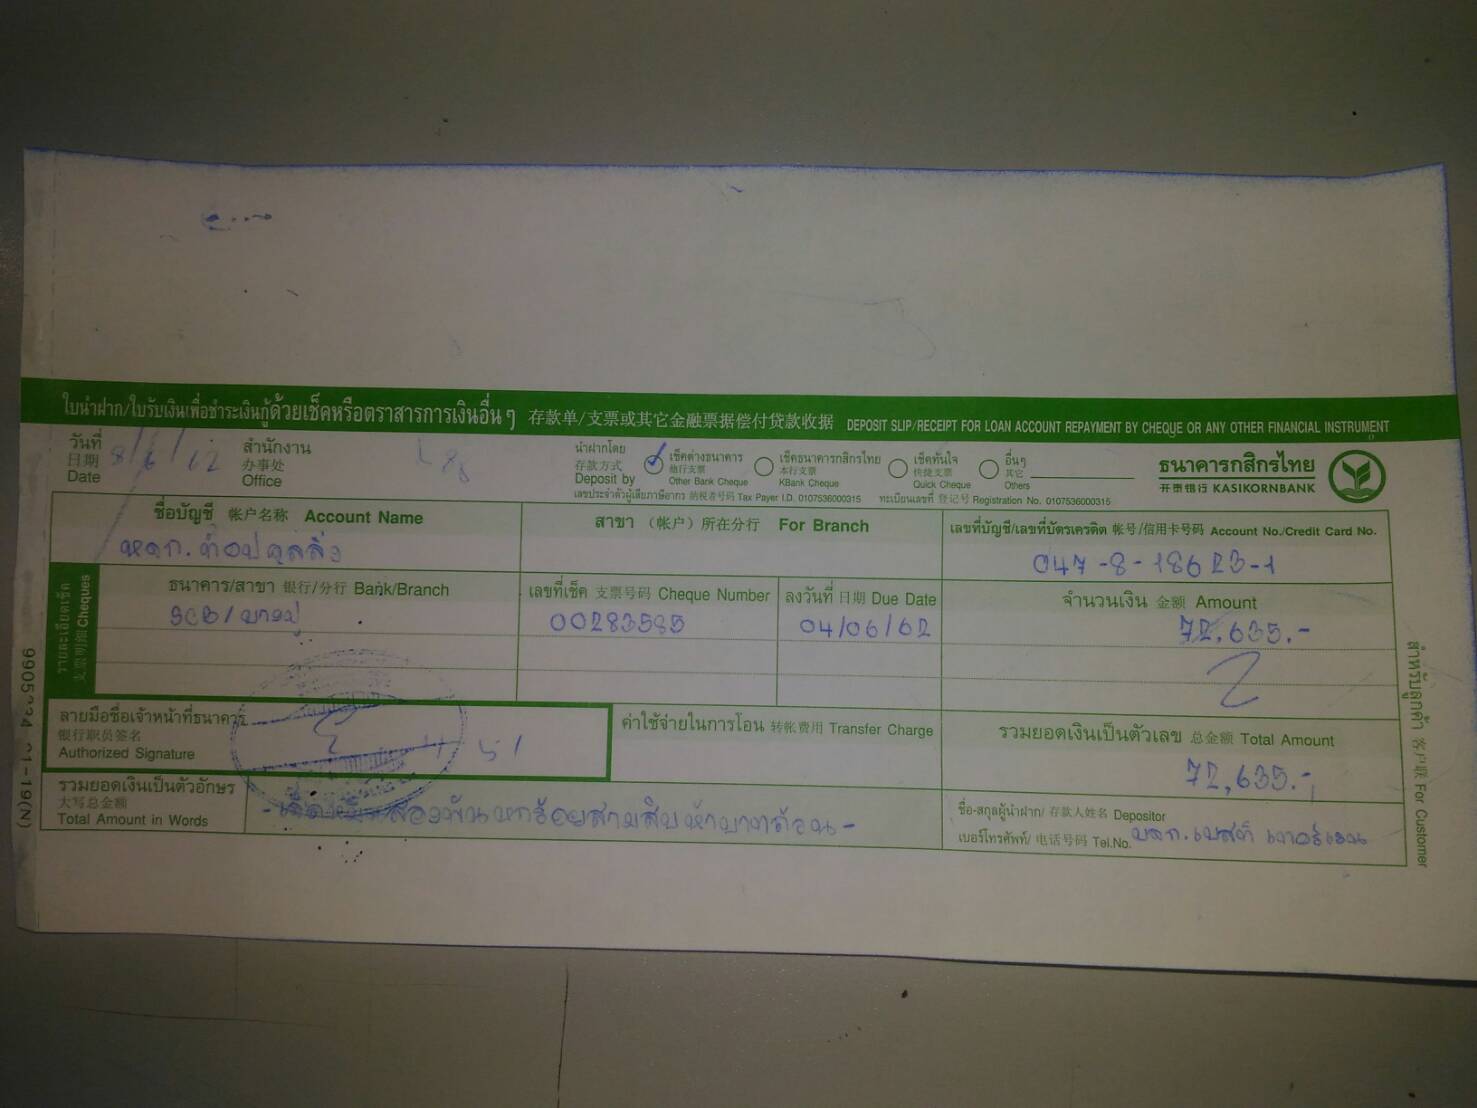 ใบนำฝาก/ใบรับเงินเพื่อชำระเงินกู้ด้วยเช็คหรือตราสารการเงินอื่น ๆ 存款单/支票或其它金融票据偿付贷款收据 DEPOSIT SLIP/RECEIPT FOR LOAN ACCOUNT REPAYMENT BY CHEQUE OR ANY OTHER FINANCIAL INSTRUMENT
วันที่ 日期 Date 8/6/62
สำนักงาน 办事处 Office
นำฝากโดย 存款方式 Deposit by
เช็คต่างธนาคาร 他行支票 Other Bank Cheque
เช็คธนาคารกสิกรไทย 本行支票 KBank Cheque
เช็คทันใจ 快捷支票 Quick Cheque
อื่นๆ 其它 Others
ธนาคารกสิกรไทย
开泰银行 KASIKORNBANK
เลขประจำตัวผู้เสียภาษีอากร 纳税者号码 Tax Payer I.D. 0107536000315 ทะเบียนเลขที่ 登记号 Registration No. 0107536000315
ชื่อบัญชี 帐户名称 Account Name
หจก. ท๊อปคูลลิ่ง
สาขา （帐户）所在分行 For Branch
เลขที่บัญชี/เลขที่บัตรเครดิต 帐号/信用卡号码 Account No./Credit Card No.
047-8-18623-1
รายละเอียดเช็ค 支票明细 Cheques
ธนาคาร/สาขา 银行/分行 Bank/Branch
SCB/บางปู
เลขที่เช็ค 支票号码 Cheque Number
00283585
ลงวันที่ 日期 Due Date
04/06/62
จำนวนเงิน 金额 Amount
72,635.-
ลายมือชื่อเจ้าหน้าที่ธนาคาร
银行职员签名
Authorized Signature
ค่าใช้จ่ายในการโอน 转帐费用 Transfer Charge
รวมยอดเงินเป็นตัวเลข 总金额 Total Amount
72,635.-
รวมยอดเงินเป็นตัวอักษร
大写总金额
Total Amount in Words
สองพันหกร้อยสามสิบห้าบาทถ้วน-
ชื่อ-สกุลผู้นำฝาก/ 存款人姓名 Depositor
เบอร์โทรศัพท์/ 电话号码 Tel.No.
สำหรับลูกค้า 客户联 For Customer